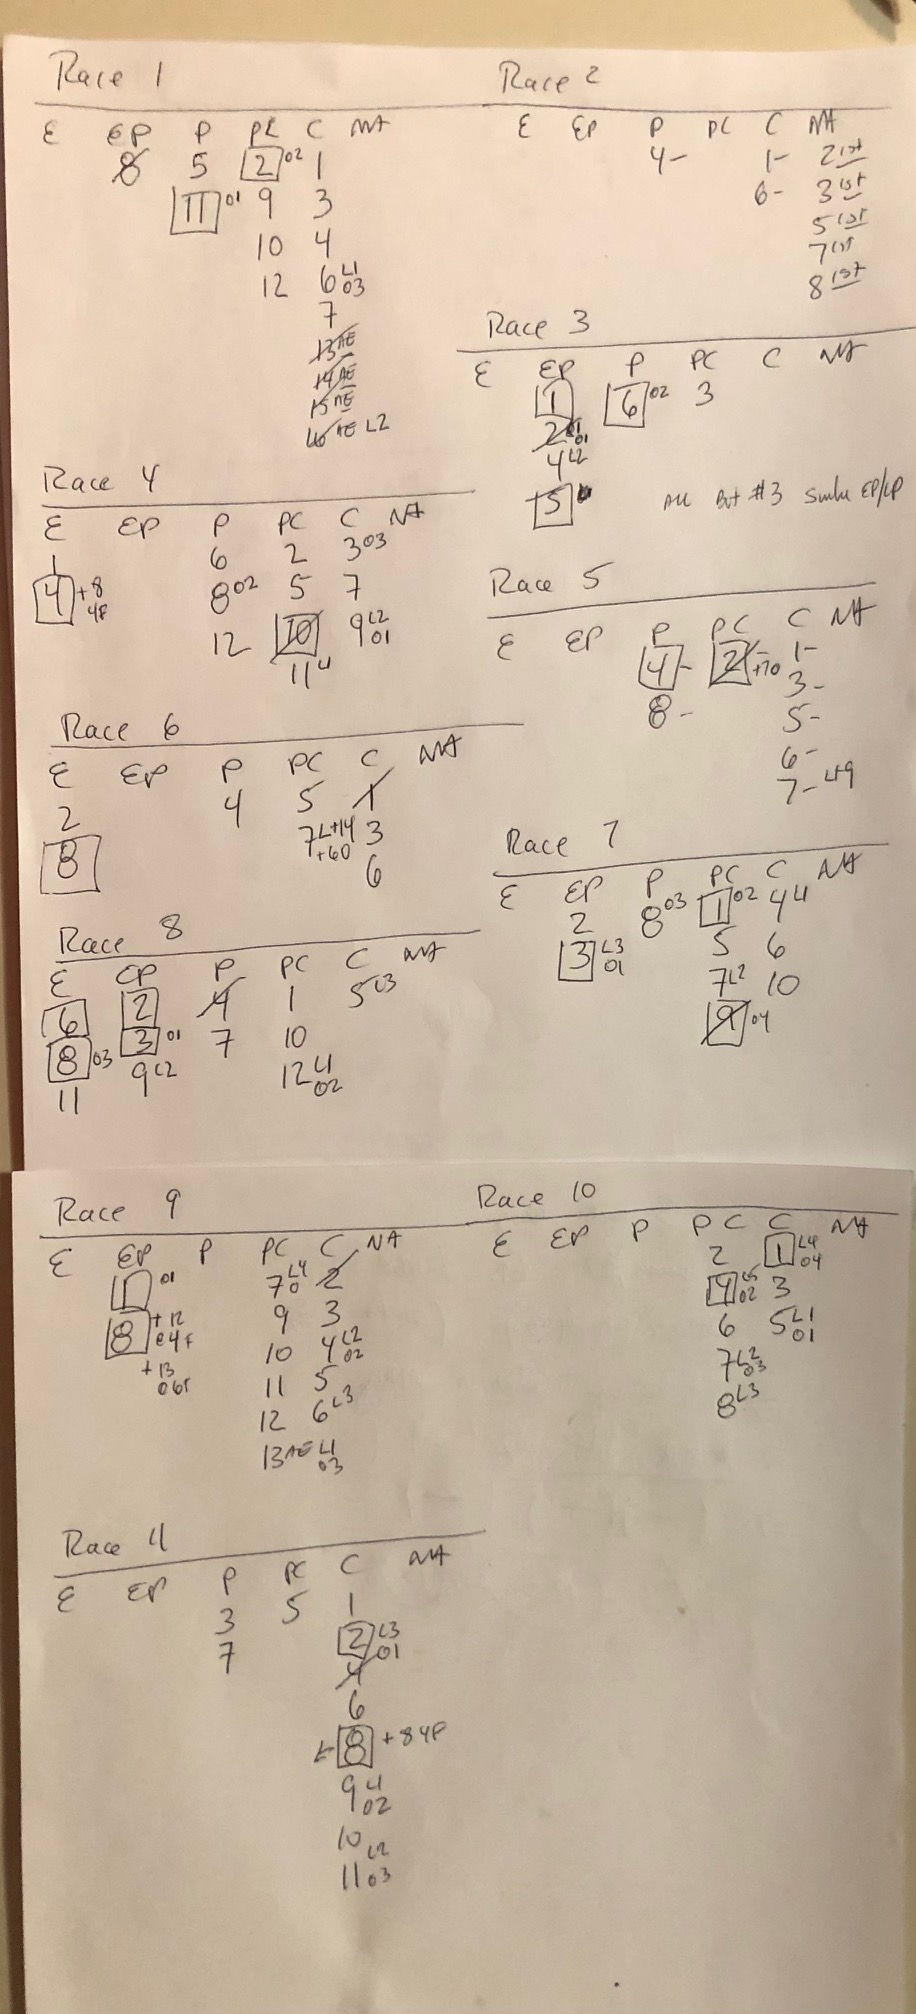 Race 1
E EP P PC C NA
8 5 2 02 1
11 01 9 3
10 4
12 6 L1 03
7
13 AE
14 AE
15 AE
16 AE L2
Race 2
E EP P PC C NA
4- 1- 2 1st
6- 3 1st
5 1st
7 1st
8 1st
Race 3
E EP P PC C NA
1 6 02 3
2 01
4 L2
5
All But #3 Similar EP/LP
Race 4
E EP P PC C NA
1 6 2 3 03
4 +8 4F 8 02 5 7
12 10 9 L2 01
11 L1
Race 5
E EP P PC C NA
4- 2- +70 1-
8- 3-
5-
6-
7- L+9
Race 6
E EP P PC C NA
2 4 5 1
8 7 L+14 +60 3
6
Race 7
E EP P PC C NA
2 8 03 1 02 4 L1
3 L3 01 5 6
7 L2 10
9 04
Race 8
E EP P PC C NA
6 2 4 1 5 L3
8 03 3 01 7 10
11 9 L2 12 L1 02
Race 9
E EP P PC C NA
1 01 7 L4 2
8 +12 e4f 9 3
+13 06f 10 4 L2 02
11 5
12 6 L3
13 AE L1 03
Race 10
E EP P PC C NA
2 1 L4 04
4 L5 02 3
6 5 L1 01
7 L2 03
8 L3
Race 11
E EP P PC C NA
3 5 1
7 2 L3 01
4
6
8 +8 4F
9 L1 02
10 L2
11 03